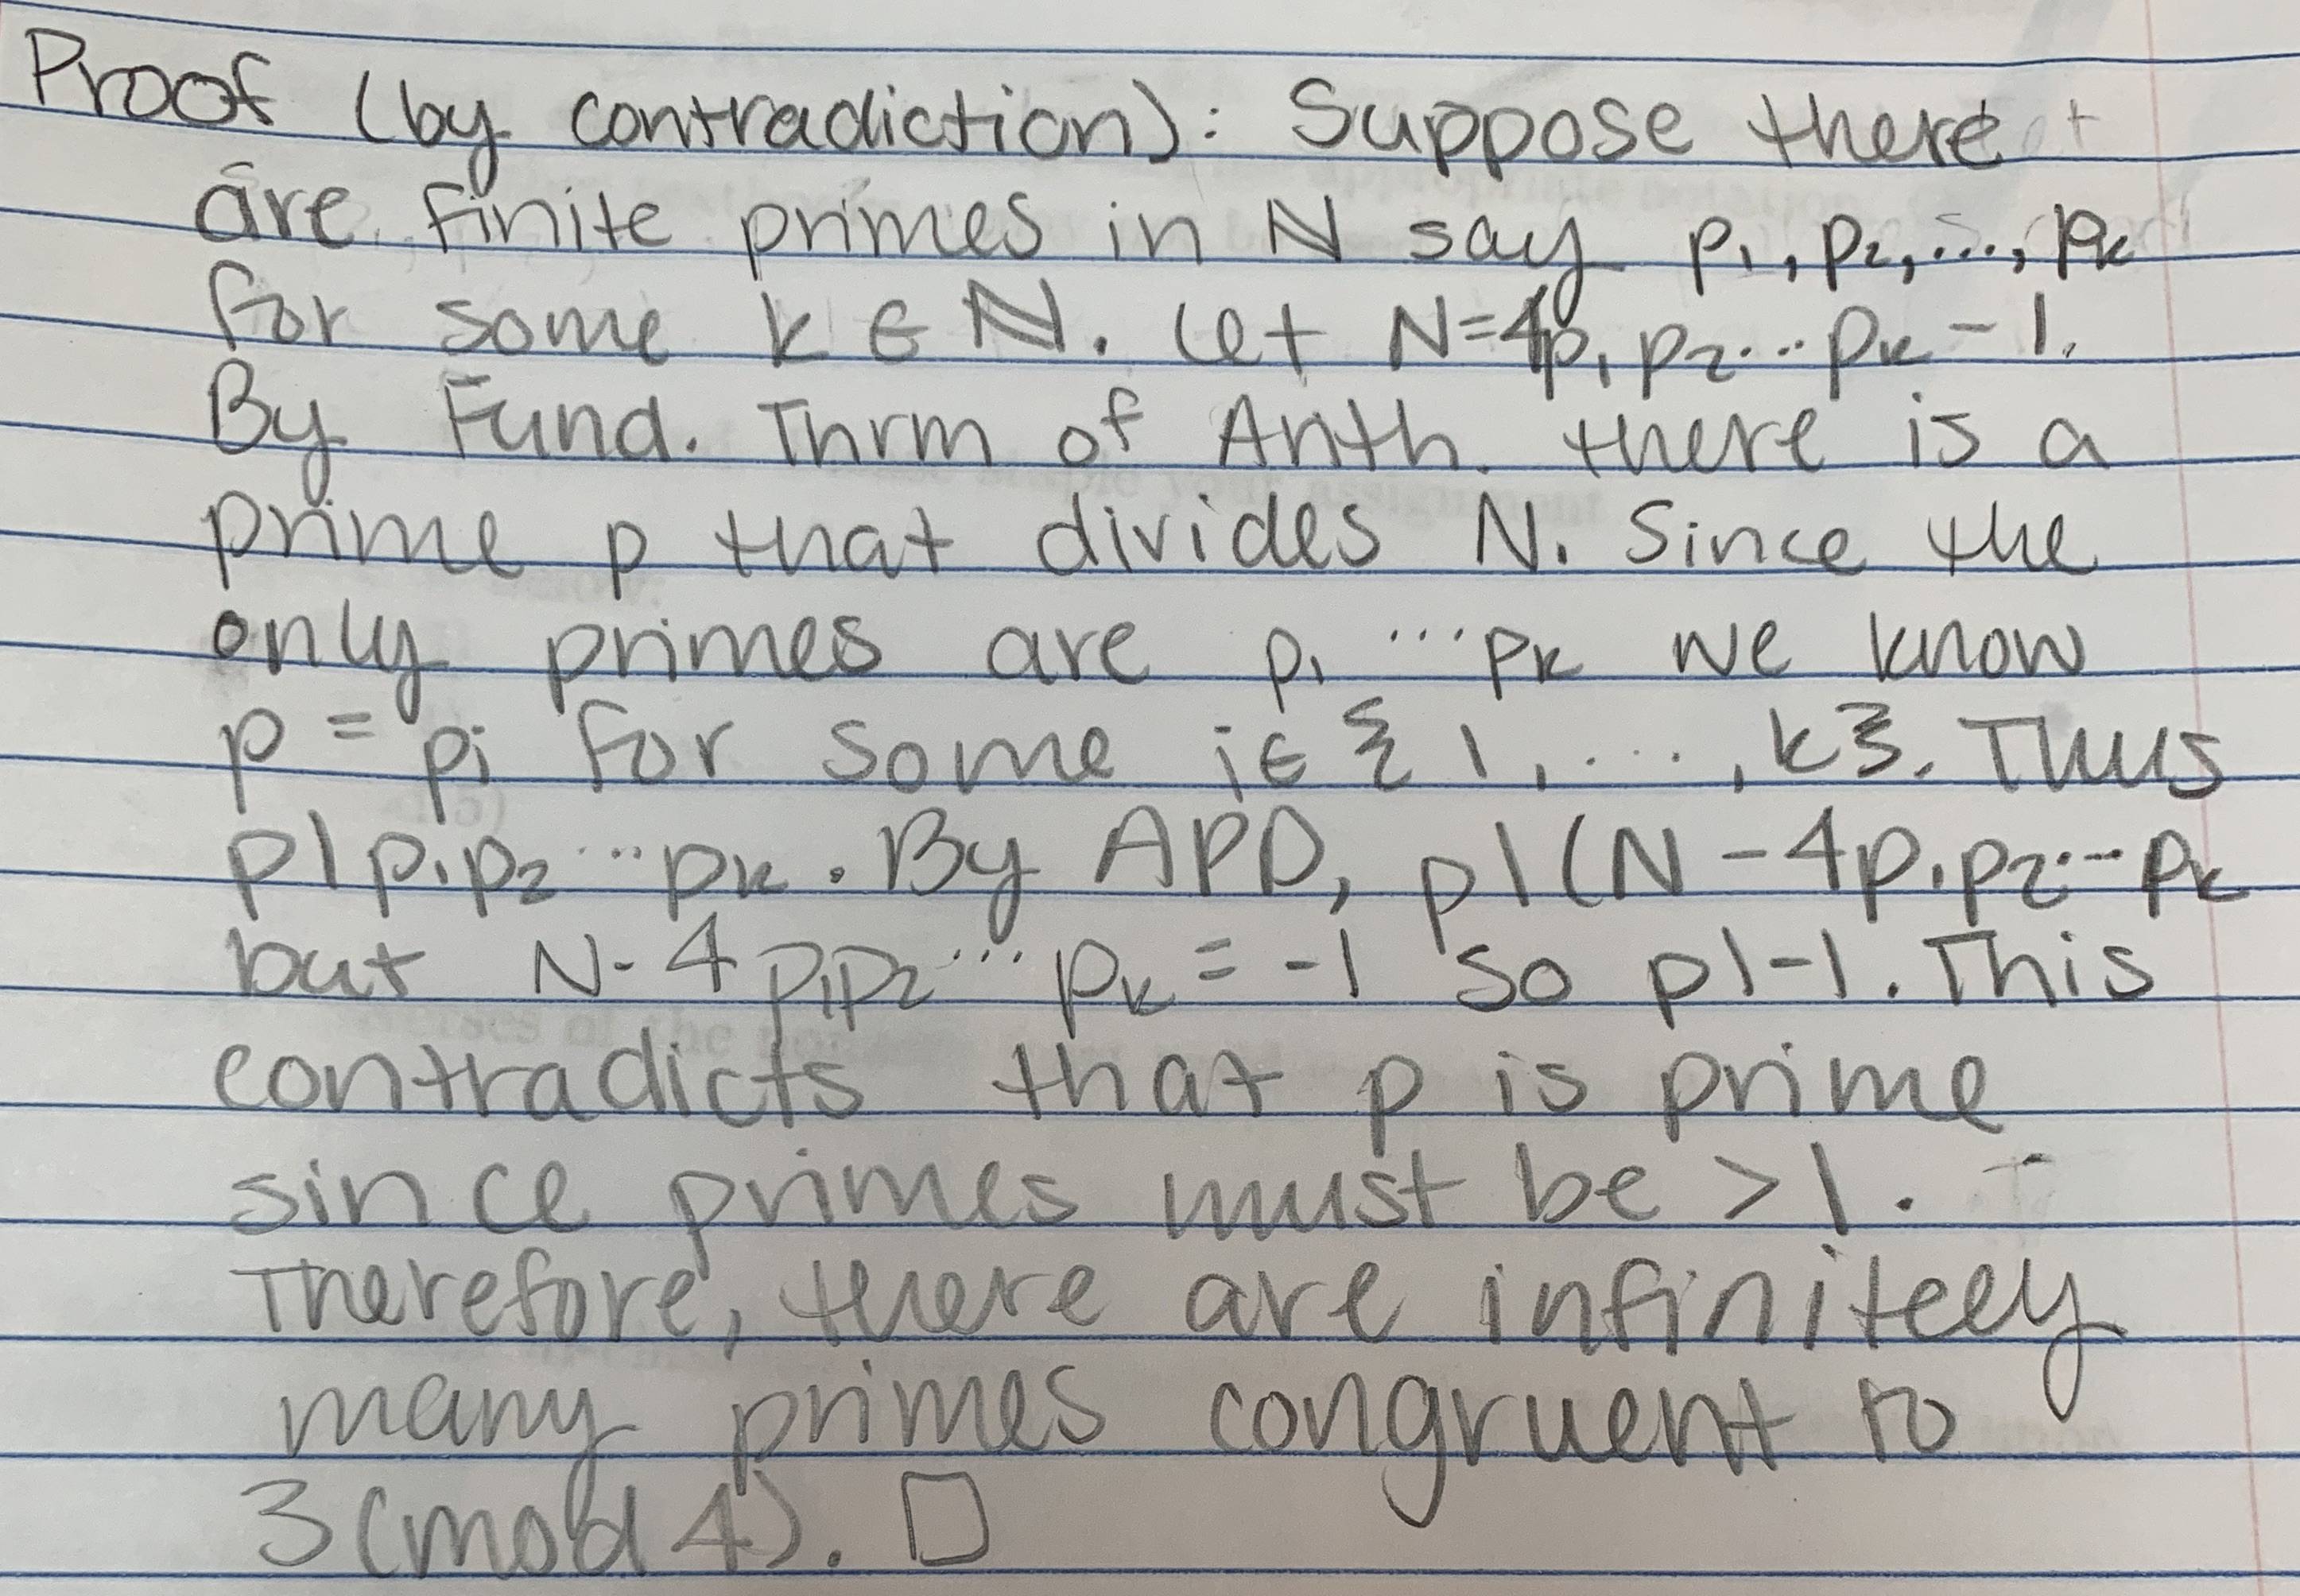 Proof (by contradiction): Suppose there
are finite primes in ℕ say p₁, p₂, ..., pₖ
for some k ∈ ℕ. Let N=4p₁p₂...pₖ - 1.
By Fund. Thrm of Arith. there is a
prime p that divides N. Since the
only primes are p₁ ... pₖ we know
p = pᵢ for some i ∈ {1, ..., k}. Thus
p|p₁p₂...pₖ. By APD, p|(N-4p₁p₂...pₖ
but N-4p₁p₂...pₖ = -1 so p|-1. This
contradicts that p is prime
since primes must be >1.
Therefore, there are infinitely
many primes congruent to
3(mod 4). □